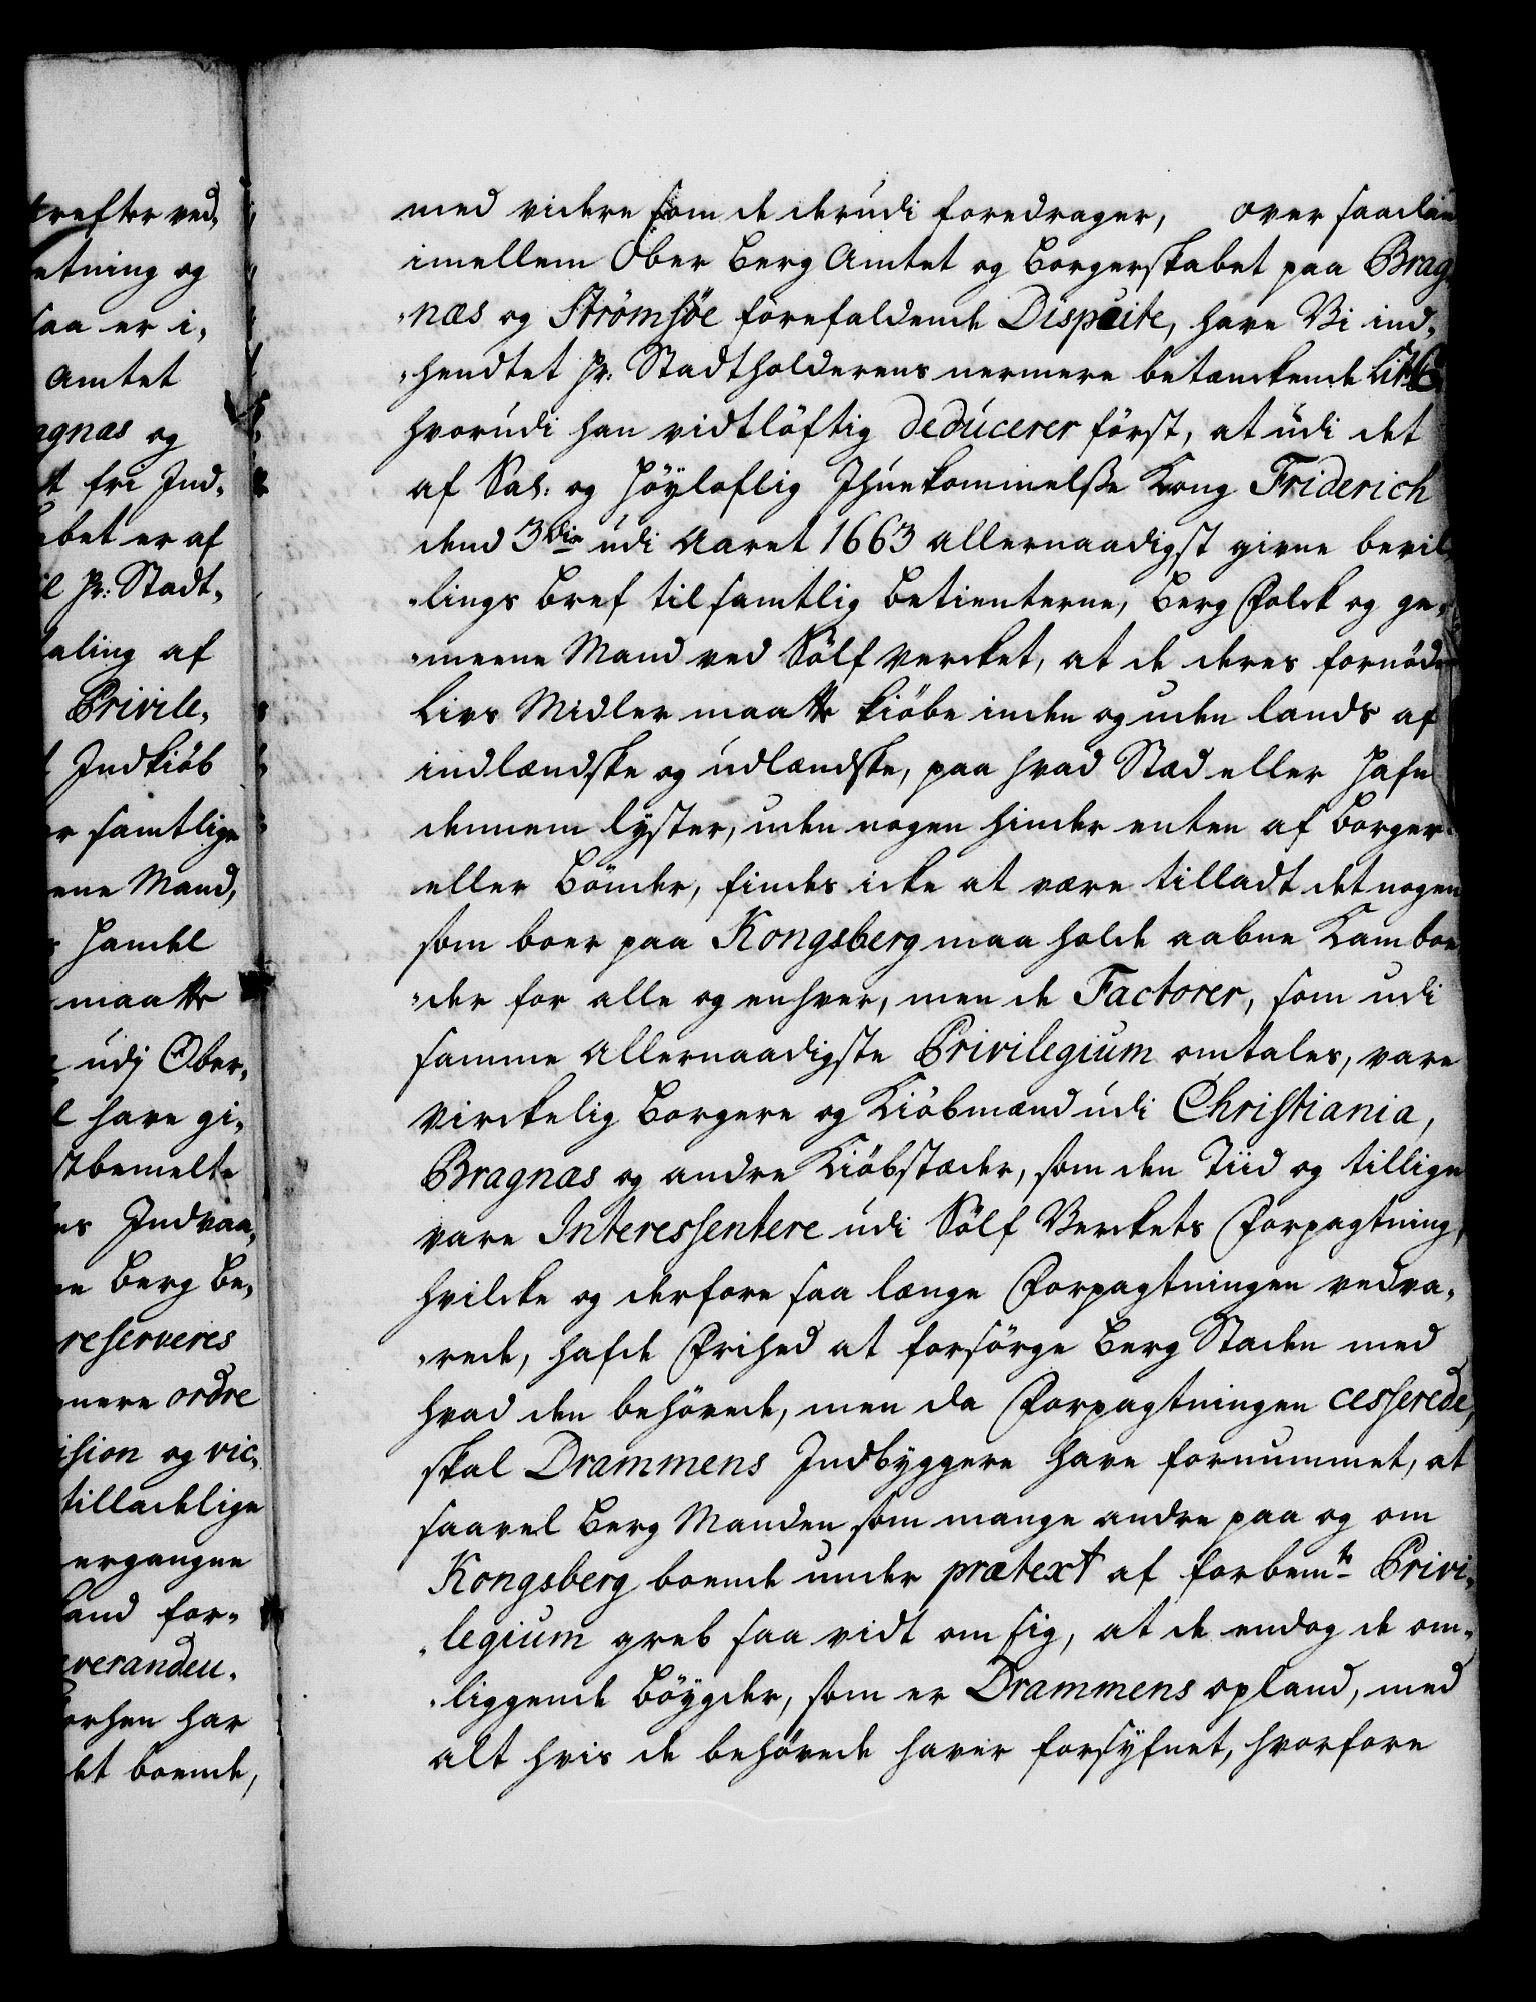 trefter ved,
etning og
saa er i,
Amtet
agnæs og
t fri Ind,
abet er af
l Hr: Stadt,
taling af
Privile,
Indkiöb
er samtlige
eene Mand,
s Handel
maatte
udj Ober,
l have gi,
stbemelte
es Indvaa,
ne Berg be,
reserveres
mere ordre
ision og vic,
tilladelige
ergangne
land for,
everandeu,
orhen har
et boende,
med videre som de derudi foredrager, over saadan
imellem Ober Berg Amtet og borgerskabet paa Brag,
,næs og Strömsöe forefaldende Dispuite, have Vi ind,
,hendtet Hr: Stadtholderens nermere betænckende
hvorudi han vidtlöftig deducerer först, at udi det
af Sal: og Höyloflig Ihuekommelsse Kong Friderich
dend 3die udi Aaret 1663 allernaadigst givne bevil,
,lings bref til samtlig betienterne, Berg Folck og ge,
,meene Mand ved Sölf Vercket, at de deres fornödne
Livs Midler maatte kiöbe inden og uden lands af
indlændske og udlændske, paa hvad Stæd eller Hafn
dennem lyster, uden nogen hinder enten af borger
eller Bönder, findes icke at være tilladt det nogen
som boer paa Kongsberg maa holde aabne Kamboe
,der for alle og enhver, men de Factorer, som udi
samme Allernaadigste Privilegium omtales, vare
virckelig borgere og Kiöbmænd udi Christiania,
Bragnæs og andre Kiöbstæder, som den Tiid og tillige
vare Interessentere udi Sölf Verckets Forpagtning,
hvilcke og derfore saa længe Forpagtningen vedva,
,rede, hafde Frihed at forsörge Berg Staden med
hvad den behövede, men da Forpagtningen cesserede,
skal Drammens Indbyggere have fornummet, at
saavel Berg Manden som mange andre paa og om
Kongsberg boende under prætext af forbemte Privi,
,legium greb saa vidt om sig, at de endog de om,
,liggende böygder, som er Drammens opland, med
alt hvis de behövede haver forsyfnet, hvorfore